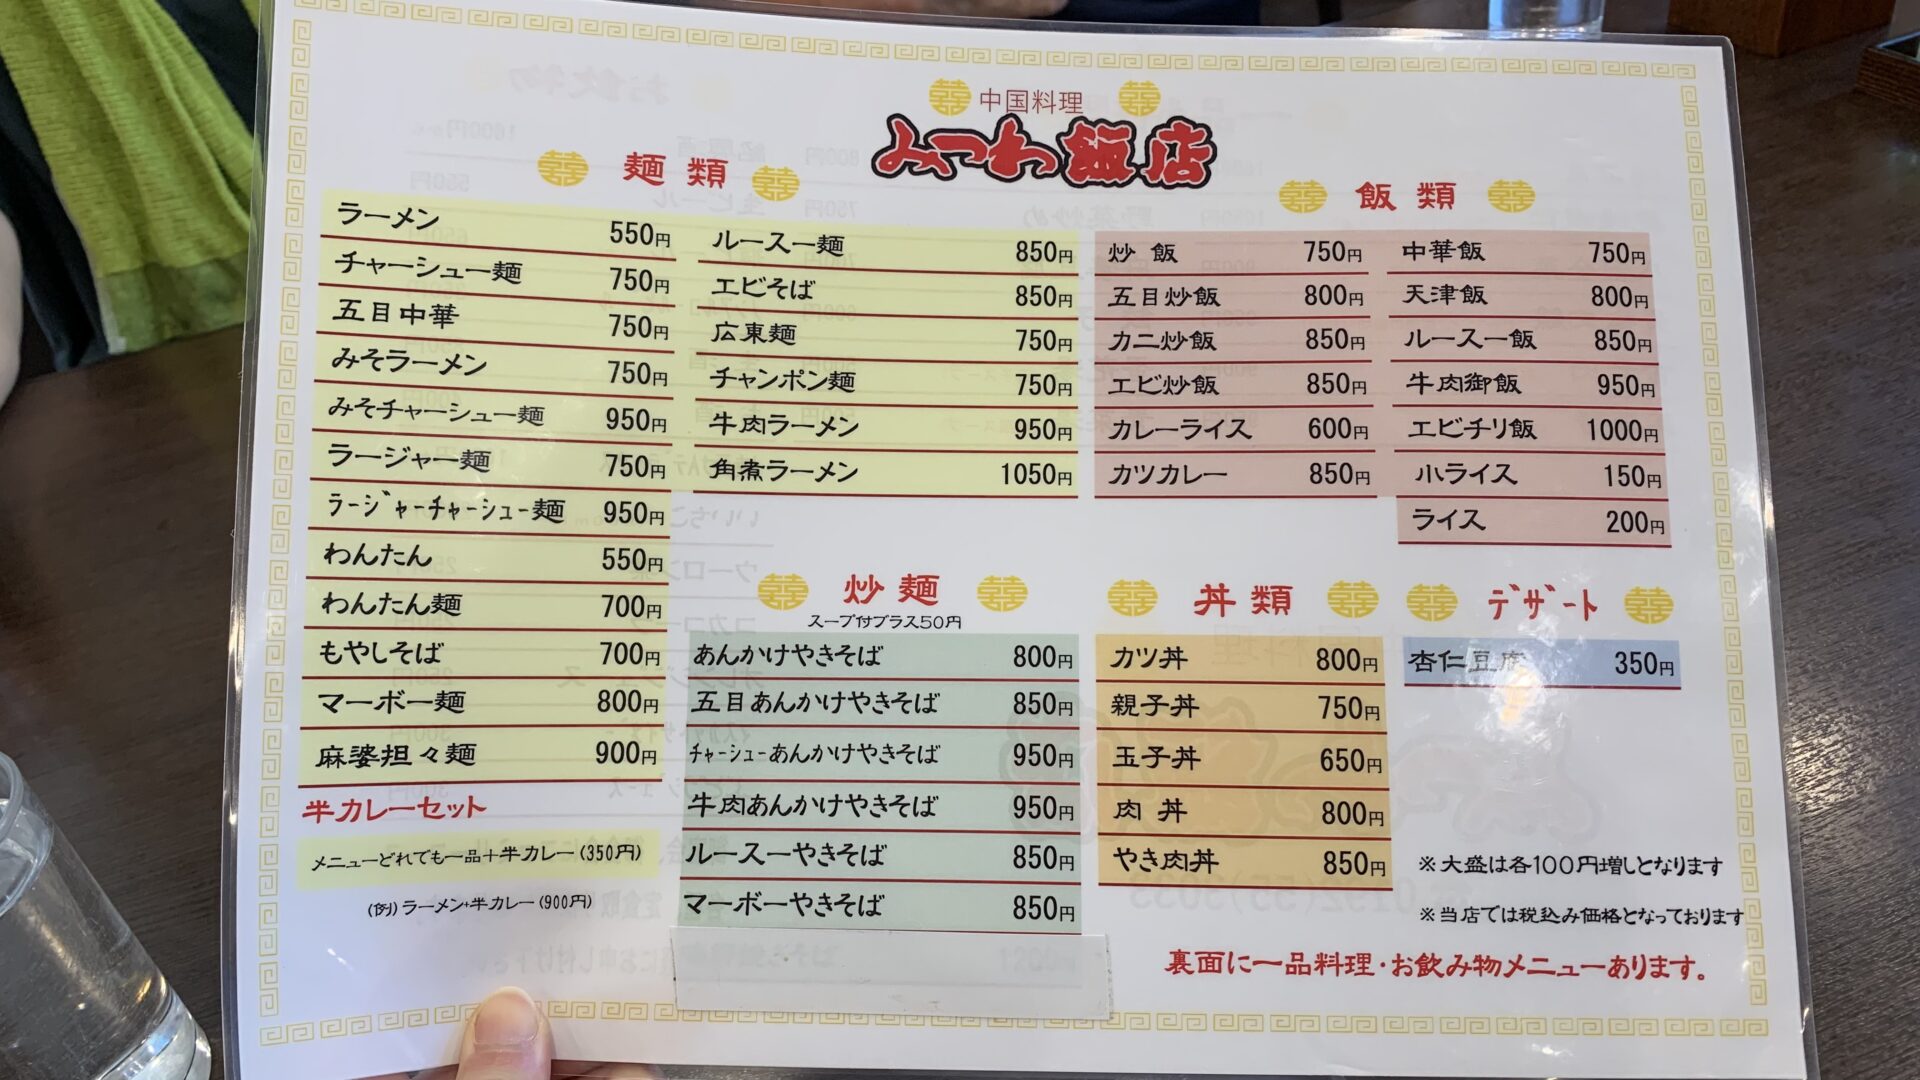 中国料理
みつわ飯店
麺類
ラーメン 550円
チャーシュー麺 750円
五目中華 750円
みそラーメン 750円
みそチャーシュー麺 950円
ラージャー麺 750円
ラージャーチャーシュー麺 950円
わんたん 550円
わんたん麺 700円
もやしそば 700円
マーボー麺 800円
麻婆担々麺 900円
半カレーセット
メニューどれでも一品+半カレー(350円)
(例)ラーメン+半カレー(900円)
ルースー麺 850円
エビそば 850円
広東麺 750円
チャンポン麺 750円
牛肉ラーメン 950円
角煮ラーメン 1050円
飯類
炒飯 750円
五目炒飯 800円
カニ炒飯 850円
エビ炒飯 850円
カレーライス 600円
カツカレー 850円
中華飯 750円
天津飯 800円
ルースー飯 850円
牛肉御飯 950円
エビチリ飯 1000円
小ライス 150円
ライス 200円
炒麺
スープ付プラス50円
あんかけやきそば 800円
五目あんかけやきそば 850円
チャーシューあんかけやきそば 950円
牛肉あんかけやきそば 950円
ルースーやきそば 850円
マーボーやきそば 850円
丼類
カツ丼 800円
親子丼 750円
玉子丼 650円
肉丼 800円
やき肉丼 850円
デザート
杏仁豆腐 350円
※大盛は各100円増しとなります
※当店では税込み価格となっております
裏面に一品料理・お飲み物メニューあります。